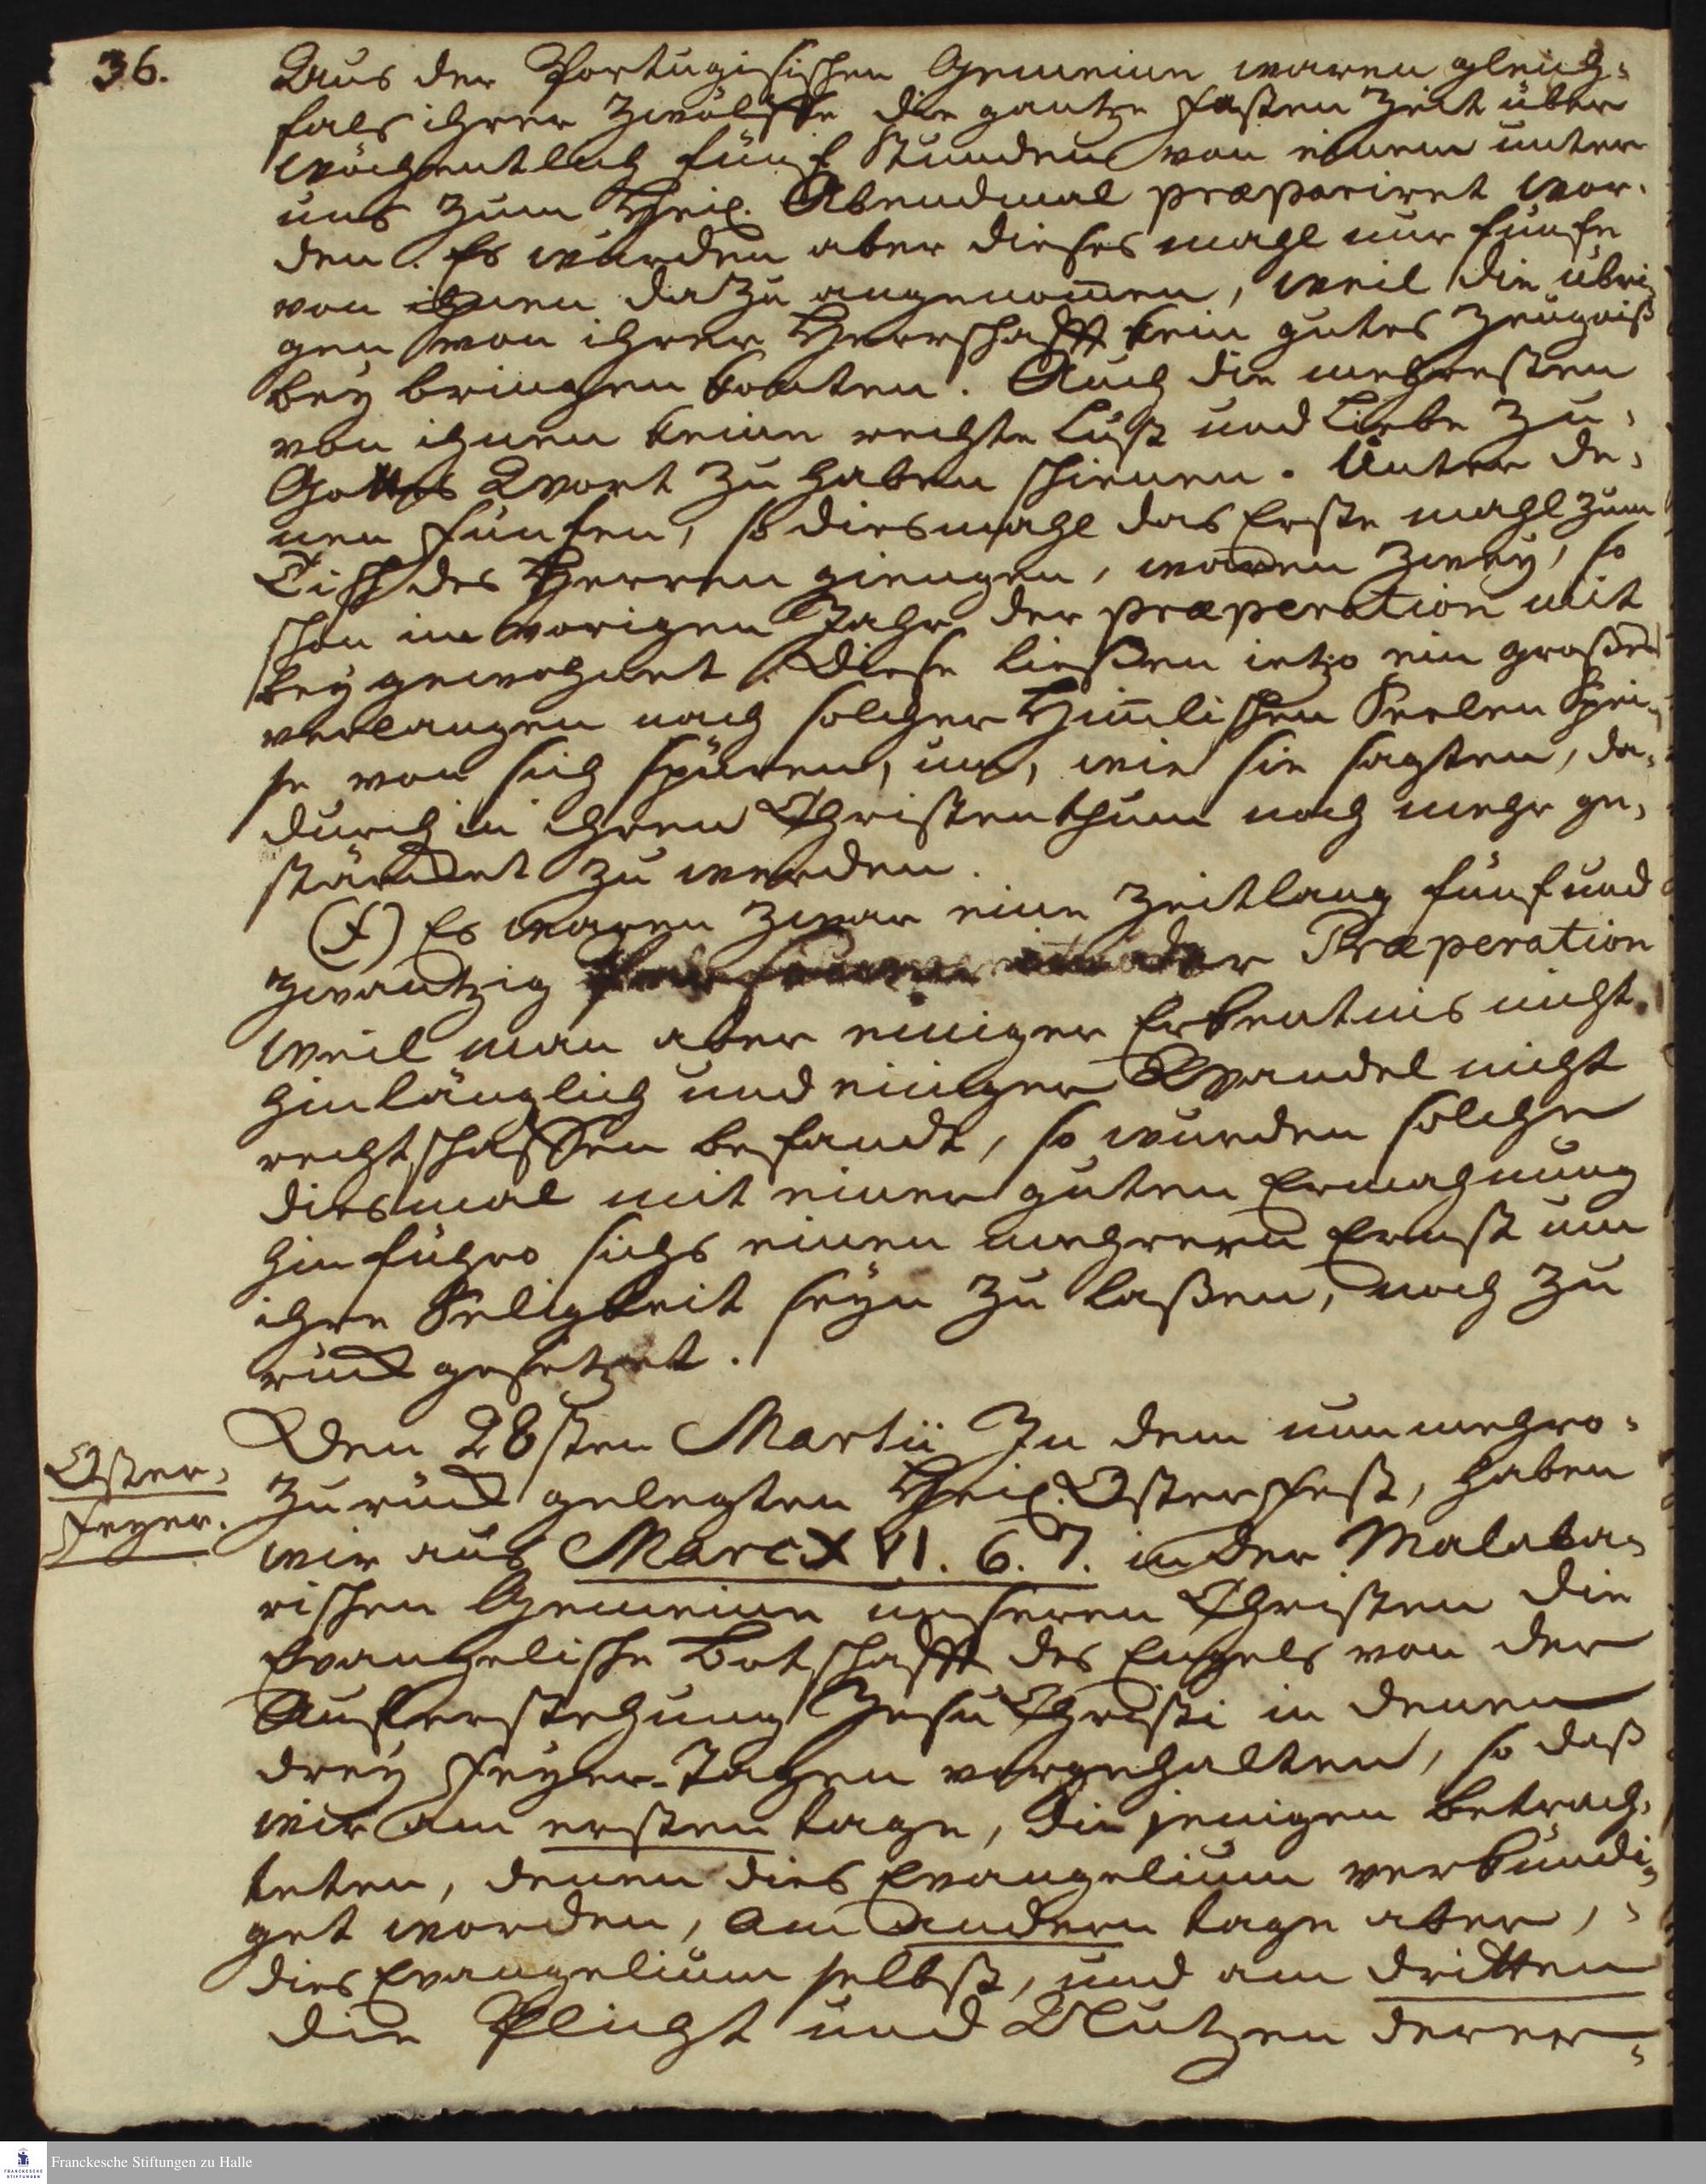 36.
Aus der Portugisischen Gemeine waren gleich-
fals ihrer zwölffe die gantze Fasten Zeit über
wöchentlich fünf Stunden von einem unter
uns zum Heil. Abendmal præpariret wor-
den. Es wurden aber dieses mahl nur fünfe
von ihnen dazu angenom̅en, weil die übri-
gen von ihrer Herrschafft kein gutes Zeugniß
bey bringen konten. Auch die mehresten
von ihnen keine rechte Lust und Liebe zu-
Gottes Wort zu haben schienen. Unter de-
nen fünfen, so diesmahl das Erste mahl zum
Tisch des Herren giengen, waren zwey, so
schon im vorigen Jahr der præperation mit
bey gewohnet. Diese ließen ietzo ein großes
verlangen nach solcher Him̅lischen Seelen Spei-
se von sich spüren, um, wie sie sagten, da-
durch in ihren Christenthum noch mehr ge-
stärcket zu werden.
(f) Es waren zwar eine Zeitlang fünf und
zwantzig in der Præperation
weil man aber einiger Erkentnis nicht
hinlänglich und einiger Wandel nicht
rechtschaffen befandt, so wurden solche
diesmal mit einer guten Ermahnung
hinführo sichs einen mehrern Ernst um
ihre Seligkeit seyn zu laßen, noch zu
rück gesetzet.
Oster-
Feyer.
Den 28sten Martii In dem nunmehro-
zurück gelegten Heil. Osterfest, haben
wir aus Marc XVI. 6. 7. in der Malaba-
rischen Gemeine unseren Christen die
Evangelische Botschafft des Engels von der
Auferstehung Jesu Christi in denen
drey Feyer-Tagen vorgehalten, so daß
wir am ersten tage, die jenigen betrach-
teten, denen dies Evangelium verkündi-
get worden, am andern tage aber,
dies Evangelium selbst, und am dritten
die Pflicht und Nutzen derer-
Franckesche Stiftungen zu Halle